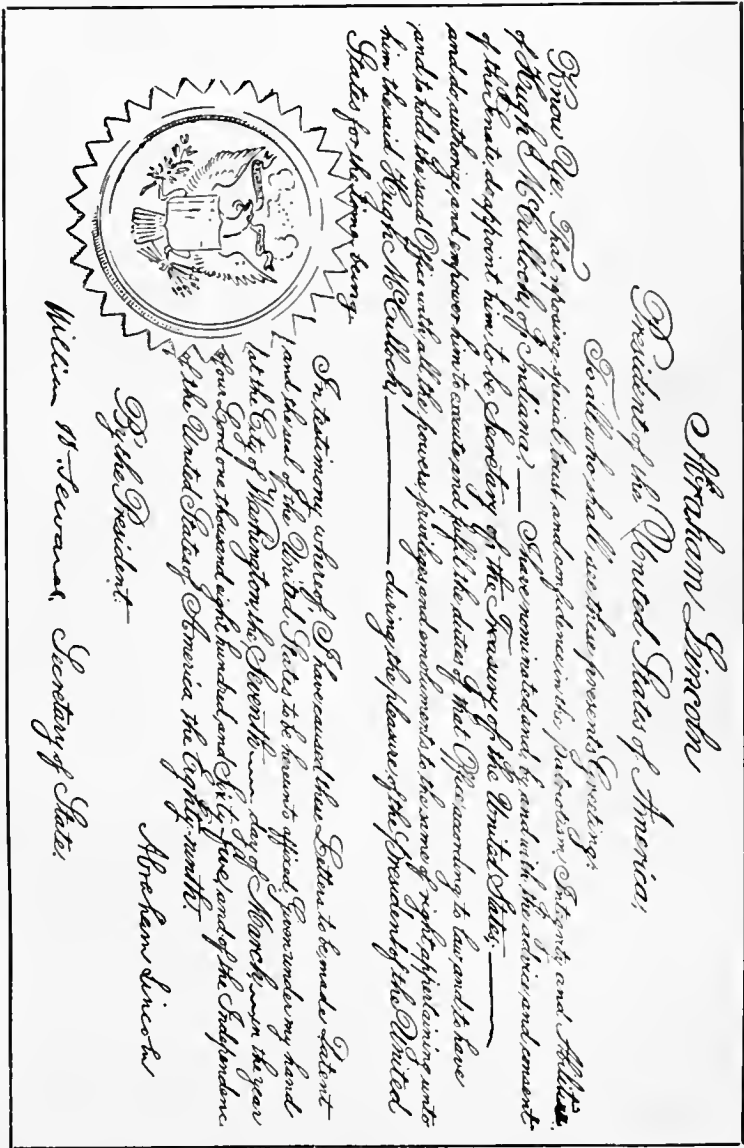 Abraham Lincoln
President of the United States of America,
To all who shall see these presents Greeting:
Know Ye, That reposing special trust and confidence in the Patriotism, Integrity and Abilities
of Hugh McCulloch, of Indiana, — I have nominated, and, by and with the advice and consent
of the Senate, do appoint him to be Secretary of the Treasury of the United States, —
and do authorize and empower him to execute and fulfil the duties of that Office according to law, and to have
and to hold the said Office with all the powers, privileges and emoluments to the same of right appertaining unto
him the said Hugh McCulloch, — during the pleasure of the President of the United
States for the time being
In testimony whereof, I have caused these Letters to be made Patent
and the seal of the United States to be hereunto affixed, Given under my hand
at the City of Washington, the Seventh — day of March, — in the year
of our Lord one thousand eight hundred, and Sixty five, and of the Independence
of the United States of America, the Eighty-ninth.
Abraham Lincoln
By the President.
William H. Seward, Secretary of State.